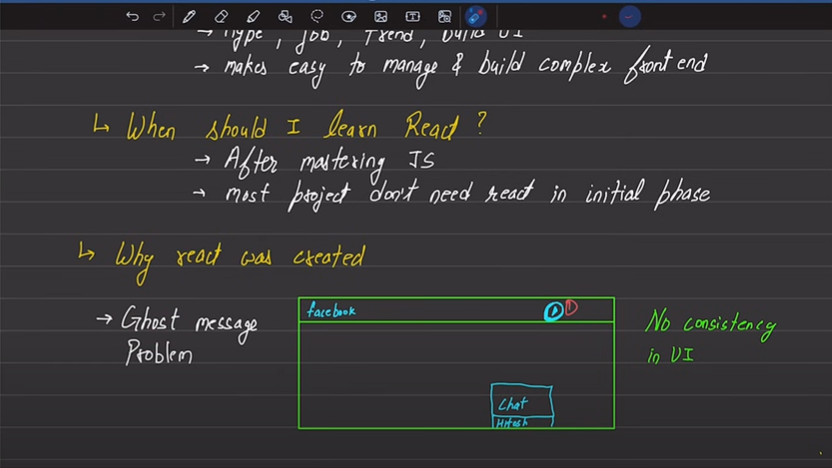 → Hype, job, Trend, build UI
→ makes easy to manage & build complex front end
↳ When should I learn React?
→ After mastering JS
→ most project don't need react in initial phase
↳ Why react was created
→ Ghost message
Problem
facebook
1
No consistency
in UI
Chat
Hitesh